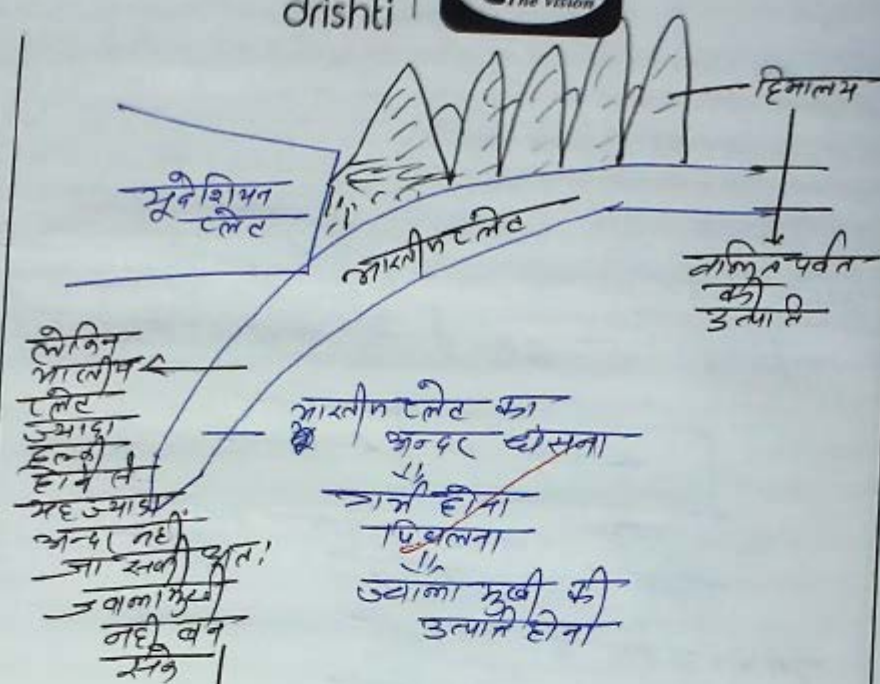 drishti
The Vision
हिमालय
यूरेशियन
प्लेट
भारतीय प्लेट
वलित पर्वत
की
उत्पत्ति
लेकिन
भारतीय
प्लेट
ज्यादा
हल्की
होने से
यह ज्यादा
अन्दर नहीं
जा सकी अतः
ज्वालामुखी
नहीं बन
सके
भारतीय प्लेट का
अन्दर धंसना
गर्म होना
पिघलना
ज्वालामुखी की
उत्पत्ति होना